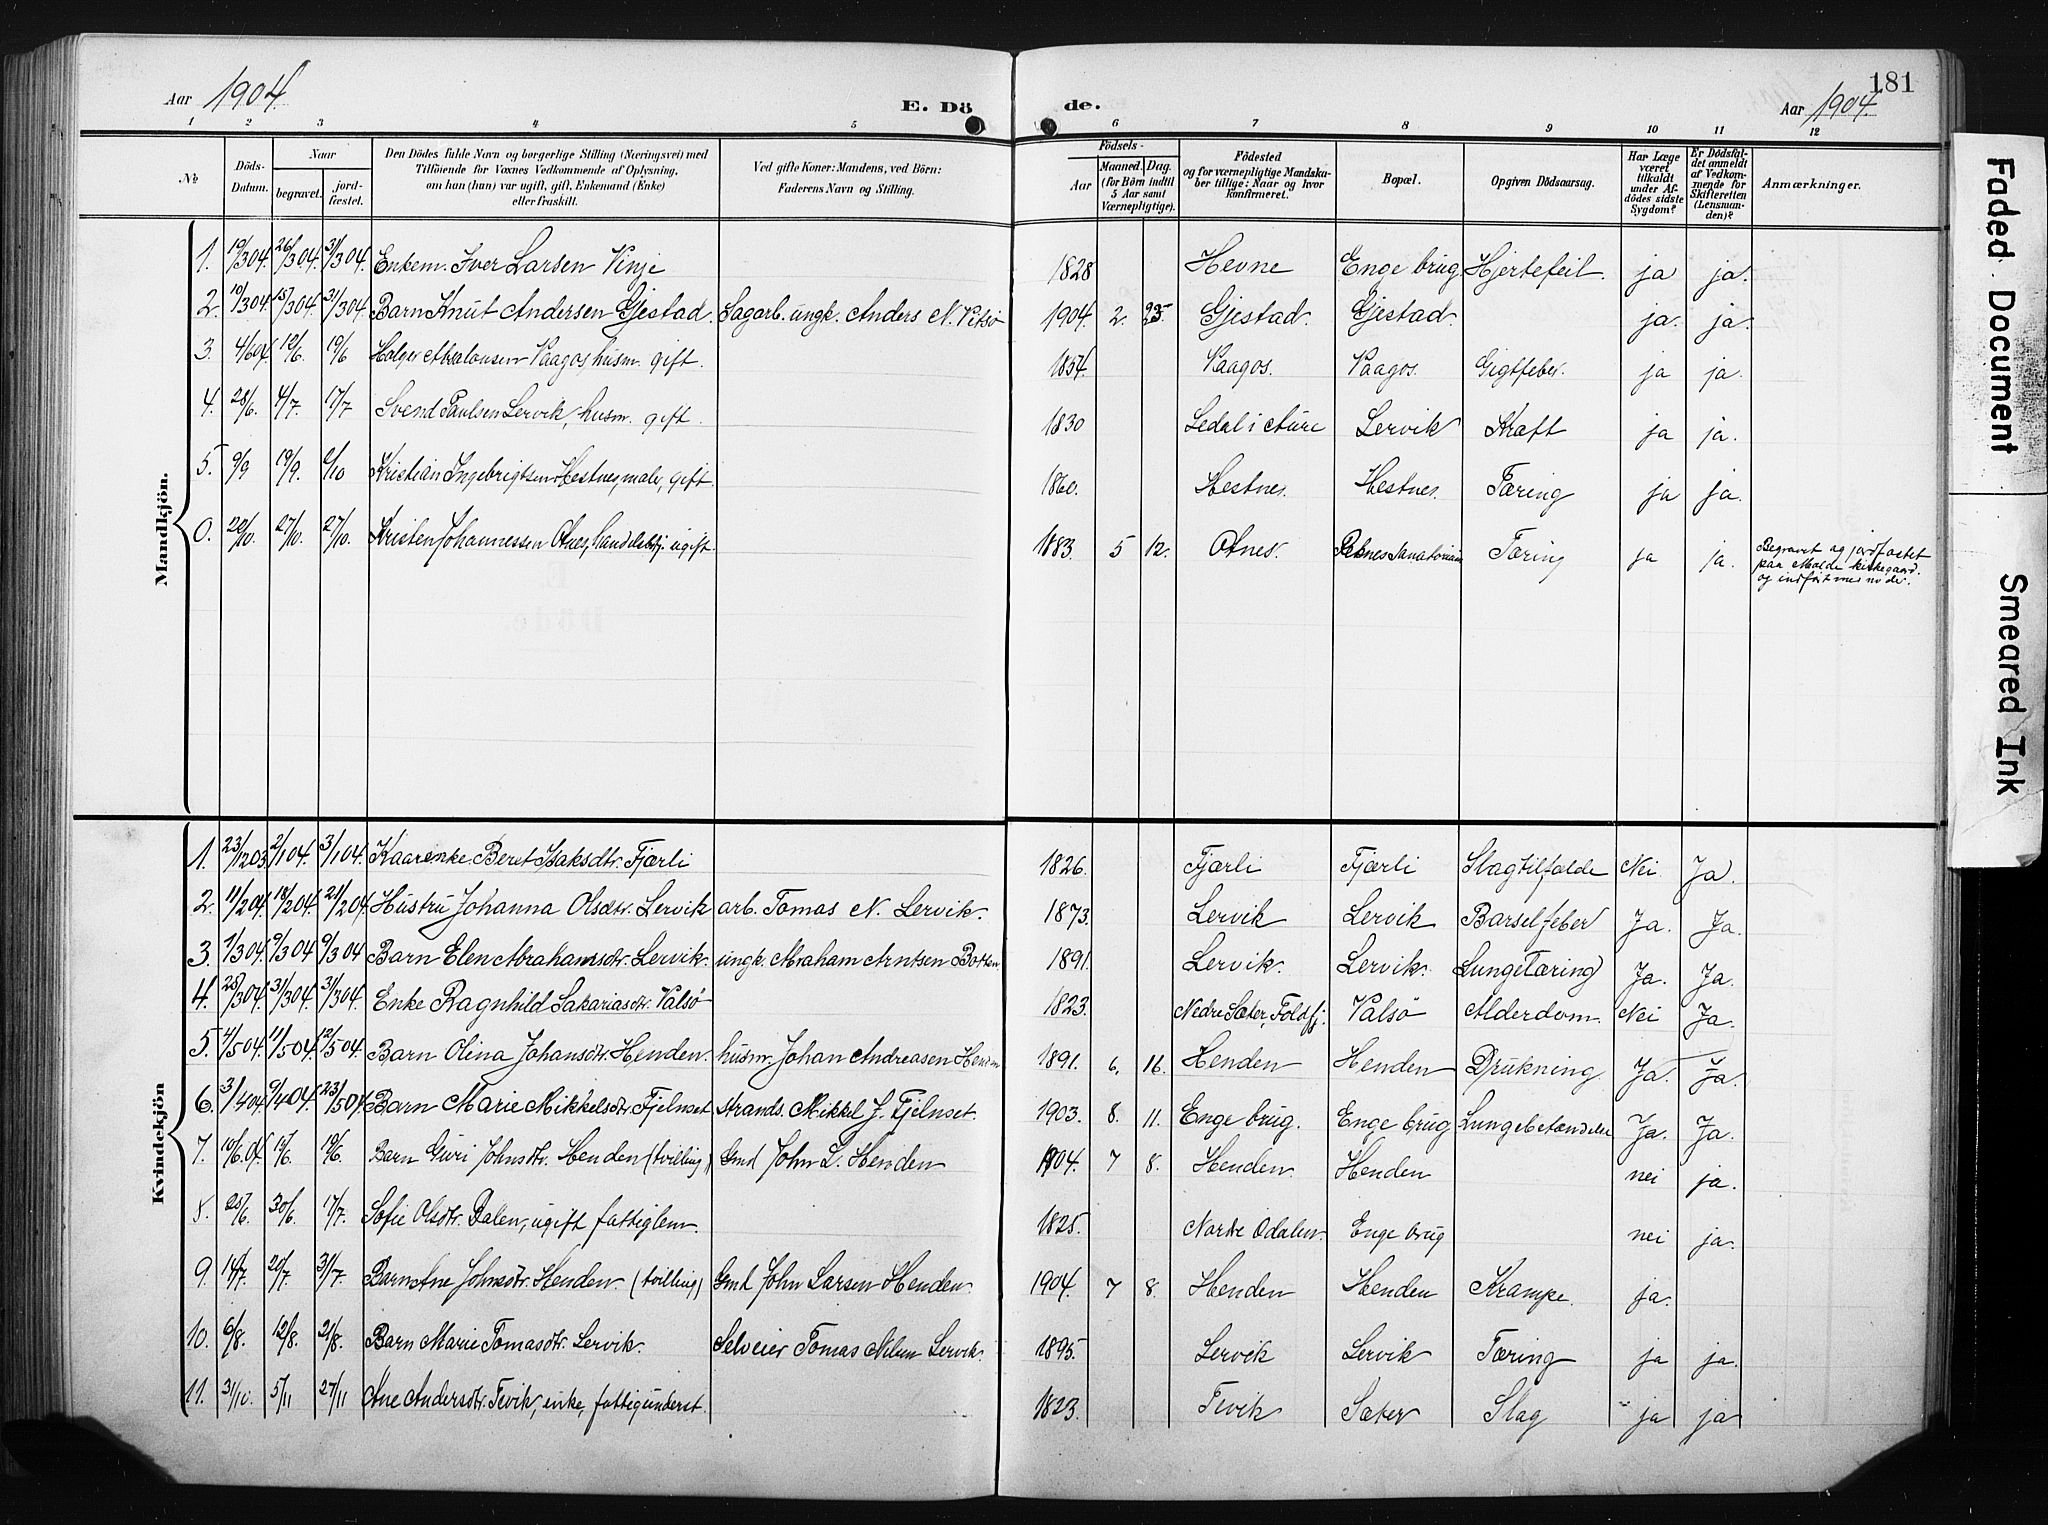 Aar 1904. E. Dö de. Aar 1904. 181
1 2 3 4 5 6 7 8 9 10 11 12
№ Döds-Datum. Naar begravet. jordfæstet. Den Dödes fulde Navn og borgerlige Stilling (Næringsvei) med Tilföiende for Voxnes Vedkommende af Oplysning, om han (hun) var ugift, gift, Enkemand (Enke) eller fraskilt. Ved gifte Koner: Mandens, ved Börn: Faderens Navn og Stilling. Födsels- Aar Maaned. Dag. (for Börn indtil 5 Aar samt Værnepligtige). Födested og for værnepligtige Mandskaber tillige: Naar og hvor konfirmeret. Bopæl. Opgiven Dödsaarsag. Har Læge været tilkaldt under Afdödes sidste Sygdom? Er Dödsfaldet anmeldt af Vedkommende for Skifteretten (Lensmanden)? Anmærkninger.
Mandkjön.
1. 19/3 04. 26/3 04. 31/3 04. Enkem. Iver Larsen Vinje 1828 Hevne Enge brug Hjertefeil. ja ja.
2. 19/3 04. 15/3 04. 31/3 04. Barn Knut Andersen Gjestad. Sagarb. ungk. Anders N. Vitsø 1904. 2. 25. Gjestad. Gjestad. ja. ja.
3. 4/6 04. 12/6. 19/6 Holger Absalonsen Vaagos, husm. gift. 1854. Vaagos. Vaagos. Gigtfeber. ja ja.
4. 28/6. 4/7. 17/7 Svend Paulsen Lervik, husm. gift. 1830 Ledal i Aure Lervik Kræft ja ja.
5. 9/9 19/9. /10 Kristian Ingebrigtsen Hestnes, maler, gift. 1860. Hestnes. Hestnes. Tæring ja ja.
0. 22/10. 27/10. 27/10. Kristen Johannessen Otnes, handelsbtj. ugift. 1883. 5 12. Otnes. Reknes Sanatorium Tæring ja ja. Begravet og jordfæstet paa Molde kirkegaard. og indført med no der.
Kvindekjön
1. 23/12 03. 2/1 04. 3/1 04. Kaarenke Beret Isaksdtr. Fjærli 1826. Fjærli Fjærli Slagtilfælde Nei Ja.
2. 11/2 04. 18/2 04. 21/2 04. Hustru Johanna Olsdtr. Lervik arb. Tomas N. Lervik. 1873. Lervik Lervik Barselfeber Ja. Ja.
3. 1/3 04. 9/3 04 9/3 04 Barn Elen Abrahamsdtr. Lervik. ungk. Abraham Arntsen Botten 1891. Lervik. Lervik. Lungetæring Ja. Ja.
4. 25/3 04. 31/3 04. 31/3 04. Enke Ragnhild Sakariasdtr. Valsø 1823. Nedre Sæter, Foldfj. Valsø Alderdom. Nei Ja.
5. 4/5 04. 11/5 04. 12/5 04. Barn Olina Johansdtr. Henden. husm. Johan Andreasen Henden 1891. 6. 16. Henden Henden Drukning. Ja. Ja.
6. 3/4 04. 9/4 04. 23/5 04. Barn Marie Mikkelsdtr. Fjelnset Strands. Mikkel J. Fjelnset. 1903. 8. 11. Enge brug. Enge brug Lungebetændelse Ja. Ja.
7. 12/6 04. 19/6. 19/6. Barn Guri Johnsdtr. Henden (tvilling) Gmd John L. Henden 1904. 7 8. Henden. Henden nei ja.
8. 25/6. 30/6. 17/7. Sofie Olsdtr. Dalen, ugift fattiglem. 1825. Nordre Odalen. Enge brug nei ja.
9. 14/7. 20/7. 31/7. Barn Ane Johnsdtr. Henden. (tvilling) Gmd John Larsen Henden. 1904. 7 8. Henden Henden Krampe. ja.
10. 6/8. 12/8. 21/8. Barn Marie Tomasdtr. Lervik. Selveier Tomas Nilsen Lervik. 1895. Lervik Lervik Tæring ja ja.
11. 31/10. 5/11 27/11 Ane Andersdtr. Tevik, enke, fattigunderst. 1823. Tevik Sæter Slag ja ja
Faded Document
Smeared Ink